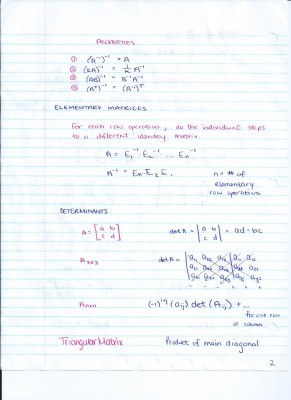 PROPERTIES
① (A⁻¹)⁻¹ = A
② (kA)⁻¹ = 1/k A⁻¹
③ (AB)⁻¹ = B⁻¹A⁻¹
④ (Aᵀ)⁻¹ = (A⁻¹)ᵀ
ELEMENTARY MATRICES
For each row operation, do the individual steps
to a different identity matrix.
A = E₁⁻¹ E₂⁻¹ ... Eₙ⁻¹
A⁻¹ = Eₙ..E₂E₁
n = # of
elementary
row operations
DETERMINANTS
A = [a b
c d]
det A = |a b
c d| = ad - bc
A₃ₓ₃
det A = |a₁₁ a₁₂ a₁₃| a₁₁ a₁₂
a₂₁ a₂₂ a₂₃ a₂₁ a₂₂
a₃₁ a₃₂ a₃₃ a₃₁ a₃₂
Aₙₓₙ
(-1)ⁱ⁺ʲ (aᵢⱼ) det (Aᵢⱼ) + ...
for one row
or column
Triangular Matrix
Product of main diagonal
2